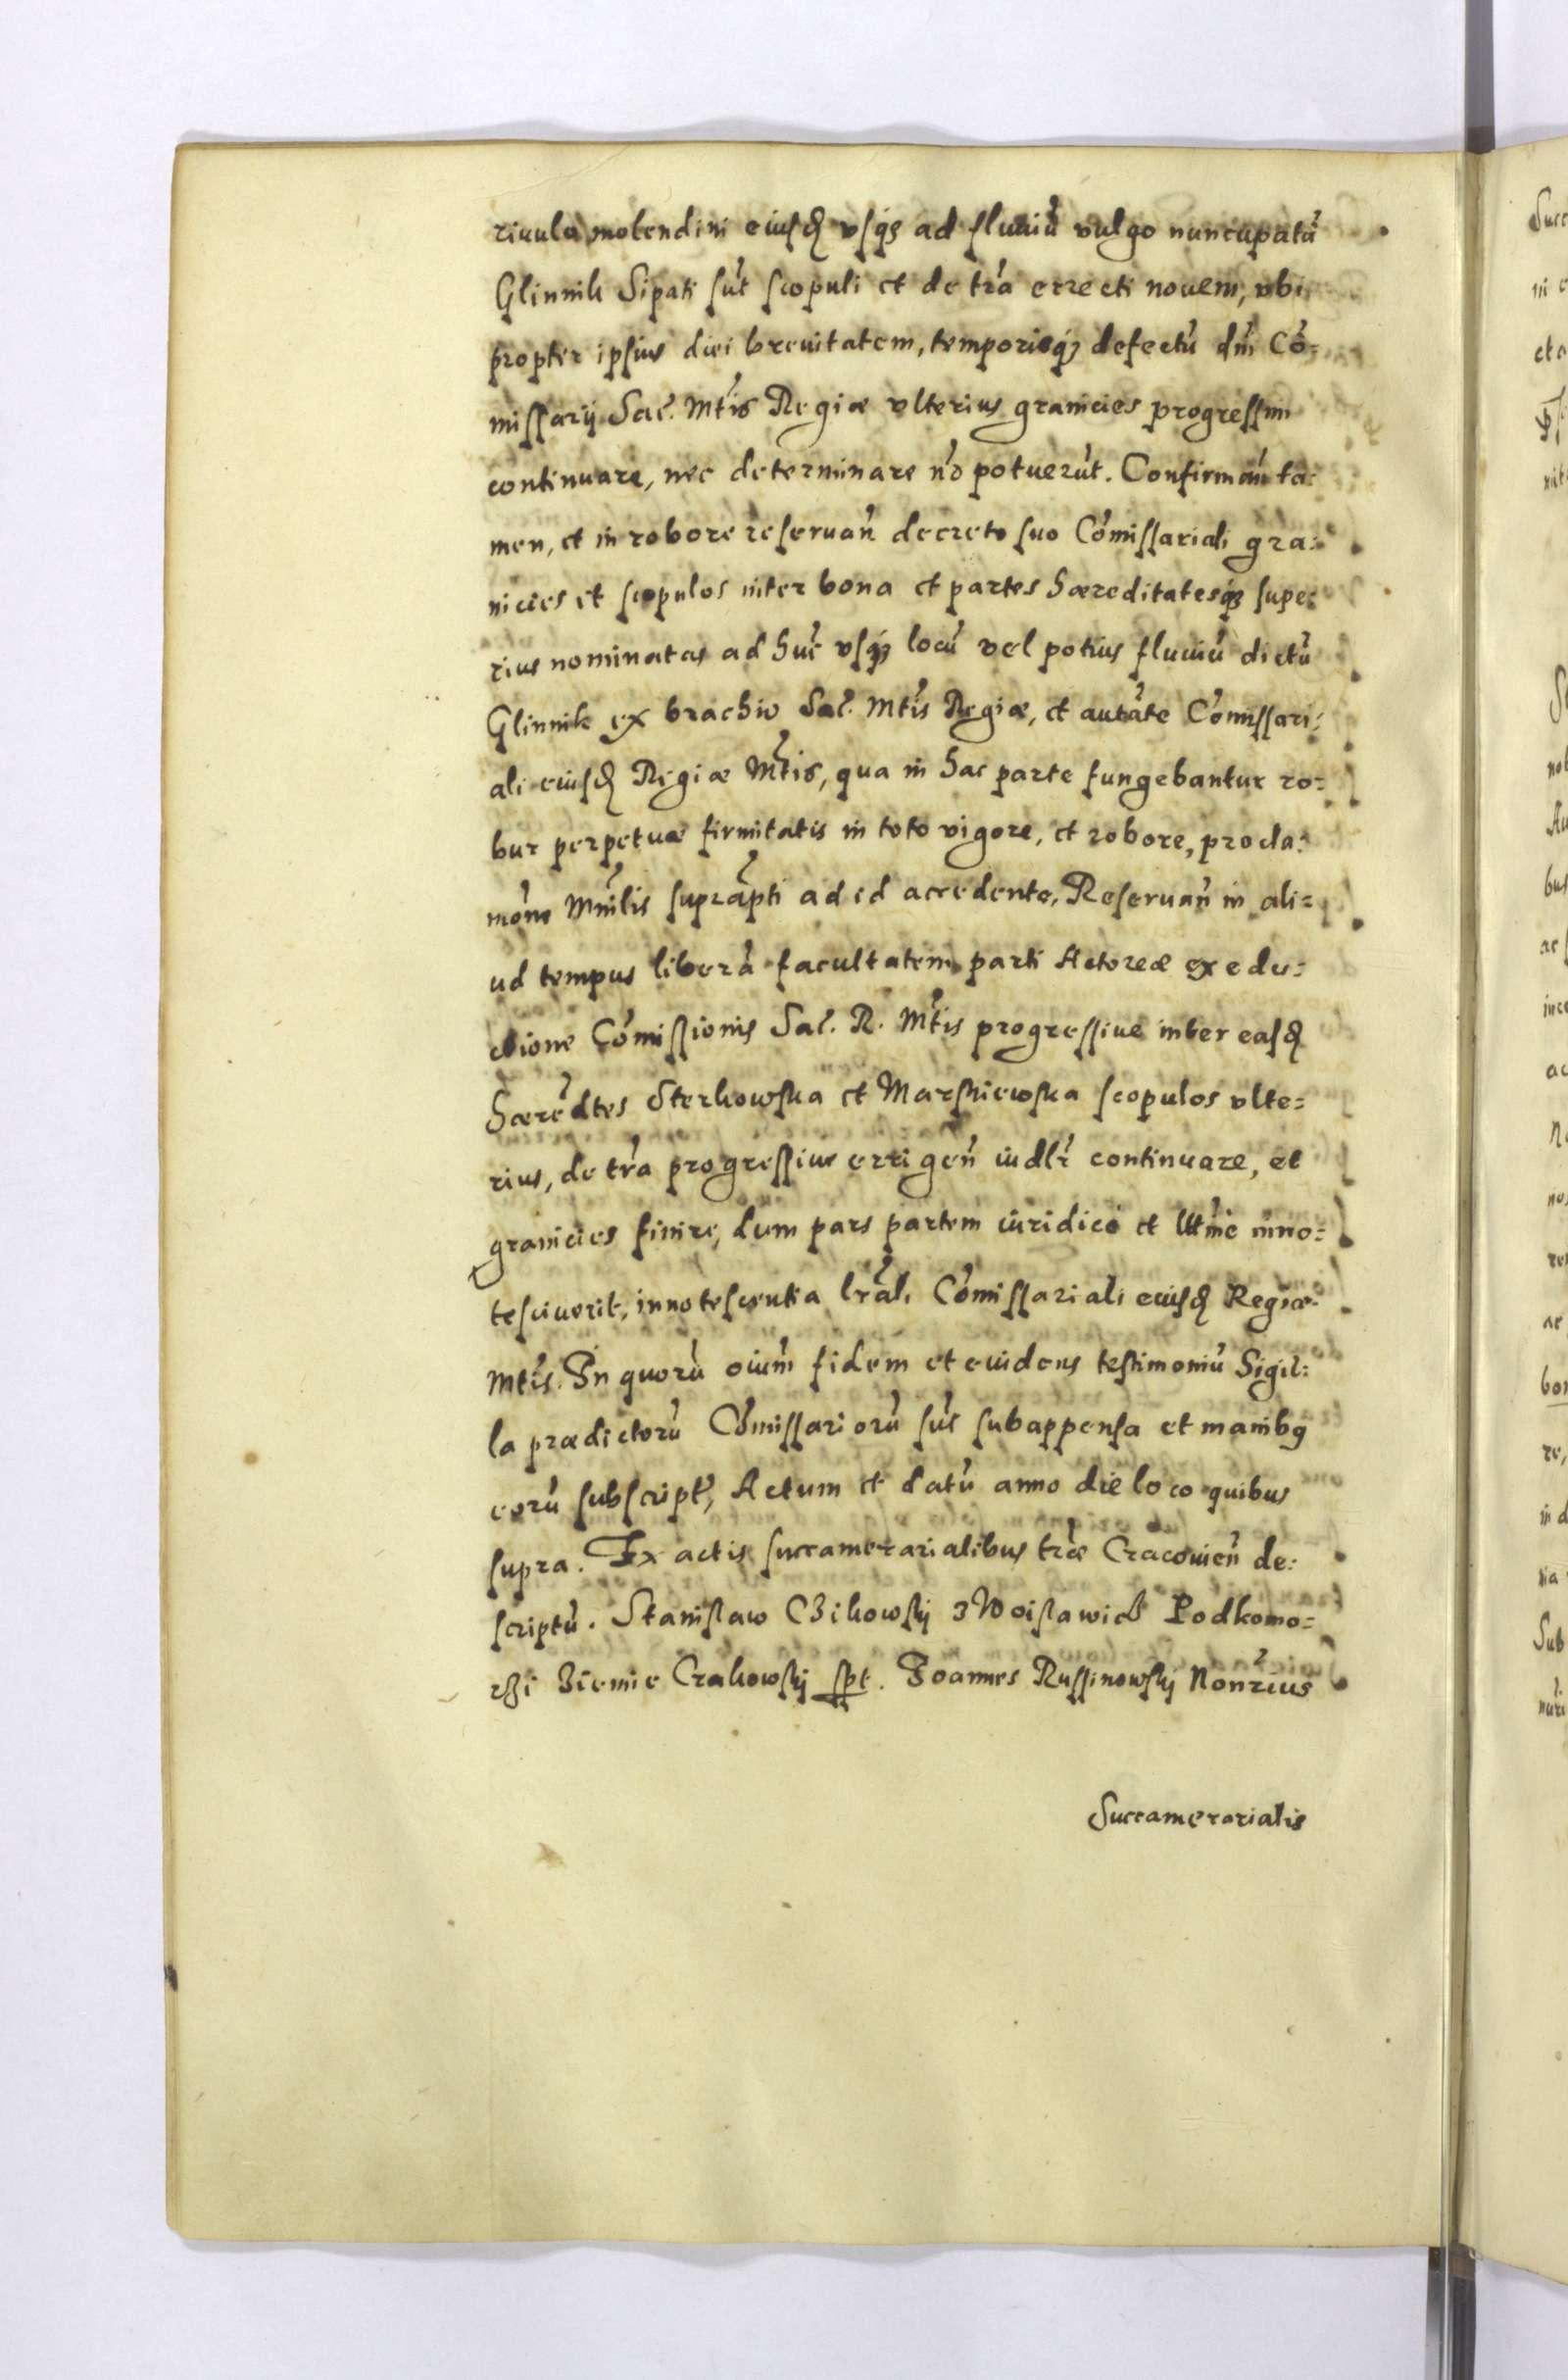 riuula molendini eiusd usq3 ad fluuiū vulgo nuncupatū
Glinnik Sipati sūt scopuli et de tra errecti nouem, vbi
propter ipsius diei breuitatem, temporisq3 defectū dni Cō=
missarij Sac. Mtis Regiæ vlterius granicies progressim
continuare, nec determinare nō potuerūt. Confirmaūt ta=
men, et in robore reseruan decreto suo Cōmissariali gra=
nicies et scopulos inter bona et partes hæreditatesq3 supe=
rius nominatas ad huc vsq3 locū vel potius fluuiū dictū
Glinnik ex brachio Sac. Mtis Regiæ, et autate Cōmissari=
ali eiusd Regiæ Mtis, qua in hac parte fungebantur ro=
bur perpetuæ firmitatis in toto vigore, et robore, procla=
mōne Mnilis suprapti ad id accedente. Reseruan in ali=
ud tempus liberā facultatem parti Actoreæ ex edu=
ctione Cōmissionis Sac. R. Mtis progressiue inter easd
hæredtes Sterkowska et Marskiewska scopulos vlte=
rius, de tra progressiue errigen iudlr continuare, et
granicies finire, dum pars partem iuridice et lltme inno=
tesciuerit, innotescentia lrali Cōmissariali eiusd Regiæ
Mtis. In quorū oium fidem et euidens testimoniū Sigil=
la prædictorū Cōmissariorū sūt subappensa et manibq
eorū subscript, Actum et datū anno die loco quibus
supra. Ex actis succamerarialibus træ Cracouien de=
scriptū. Stanislaw Czikowskj z Woislawicz Podkomo=
rzi Ziemie Crakowskj spt. Joannes Russinowskj Nonrius
Succamerarialis